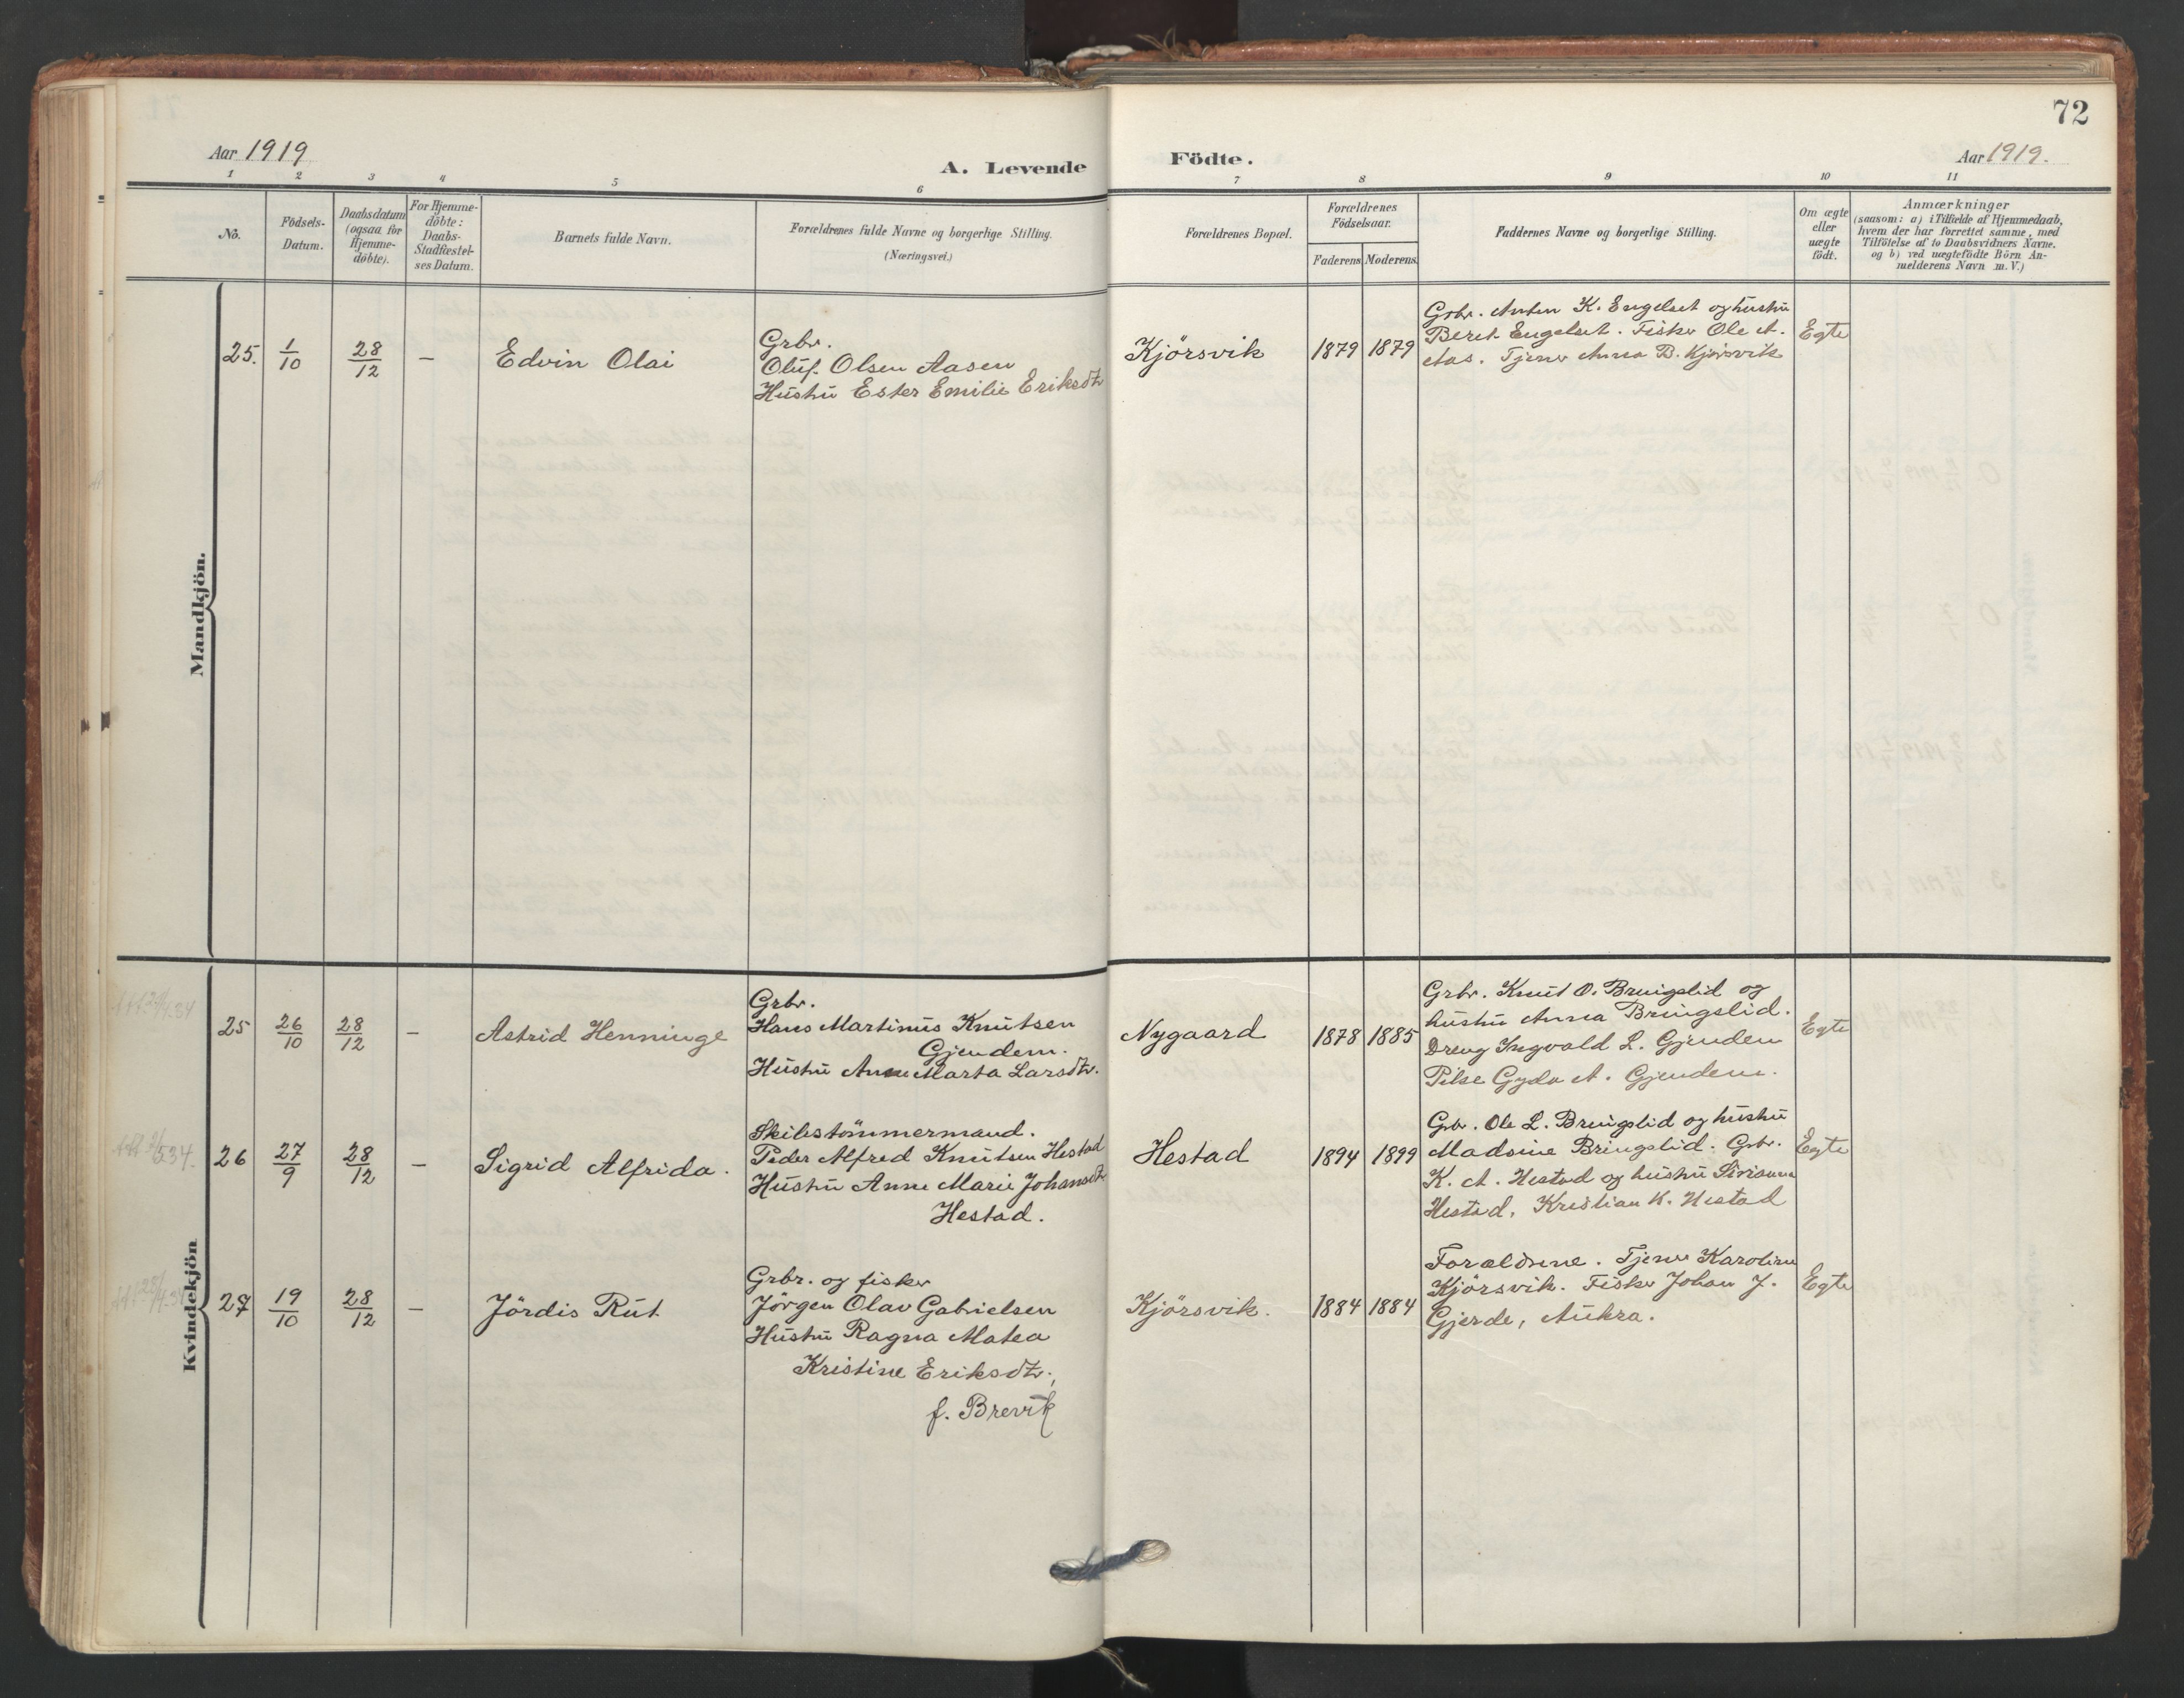 72
Aar 1919
A. Levende Födte.
Aar 1919.
1 2 3 4 5 6 7 8 9 10 11
No.
Födsels-
Datum.
Daabsdatum
(ogsaa for
Hjemme-
döbte).
For Hjemme-
döbte:
Daabs-
Stadfæstel-
ses Datum.
Barnets fulde Navn.
Forældrenes fulde Navne og borgerlige Stilling.
(Næringsvei.)
Forældrenes Bopæl.
Forældrenes
Födselsaar.
Faderens. Moderens.
Faddernes Navne og borgerlige Stilling.
Om ægte
eller
uægte
födt.
Anmærkninger
(saasom: a) i Tilfælde af Hjemmedaab,
hvem der har forrettet samme, med
Tilföielse af to Daabsvidners Navne.
og b) ved uægtefödte Börn An-
melderens Navn m. V.)
Mandkjön.
25. 1/10 28/12 — Edvin Olai
Grbr.
Oluf Olsen Aasen
Hustru Ester Emilie Eriksdtr
Kjörsvik 1879 1879
Grbr. Anton K. Engelset og hustru
Beret Engelset. Fisker Ole A.
Aas. Tjener Anna B. Kjörsvik
Egte
Kvindekjön
25 26/10 28/12 — Astrid Henninge
Grbr.
Hans Martinus Knutsen
Gjendem.
Hustru Anne Marta Larsdtr.
Nygaard 1878 1885
Grbr. Knut O. Bringslid og
hustru Anna Bringslid.
Dreng Ingvald L. Gjendem
Pike Gyda A. Gjendem.
Egte
26 27/9 28/12 — Sigrid Alfrida.
Skibstömmermand.
Peder Alfred Knutsen Hestad
Hustru Anne Marie Johansdtr.
Hestad.
Hestad 1894 1899
Grbr. Ole L. Bringslid og hustru
Madsine Bringslid. Grbr.
K. A. Hestad og hustru Sirianna
Hestad, Kristian K. Hestad
Egte
27 19/10 28/12 — Jördis Rut
Grbr. og fisker
Jörgen Olav Gabrielsen
Hustru Ragna Matea
Kristine Eriksdtr.,
f. Brevik
Kjörsvik. 1884 1884
Forældrene. Tjener Karoline
Kjörsvik. Fisker Johan J.
Gjerde, Aukra.
Egte